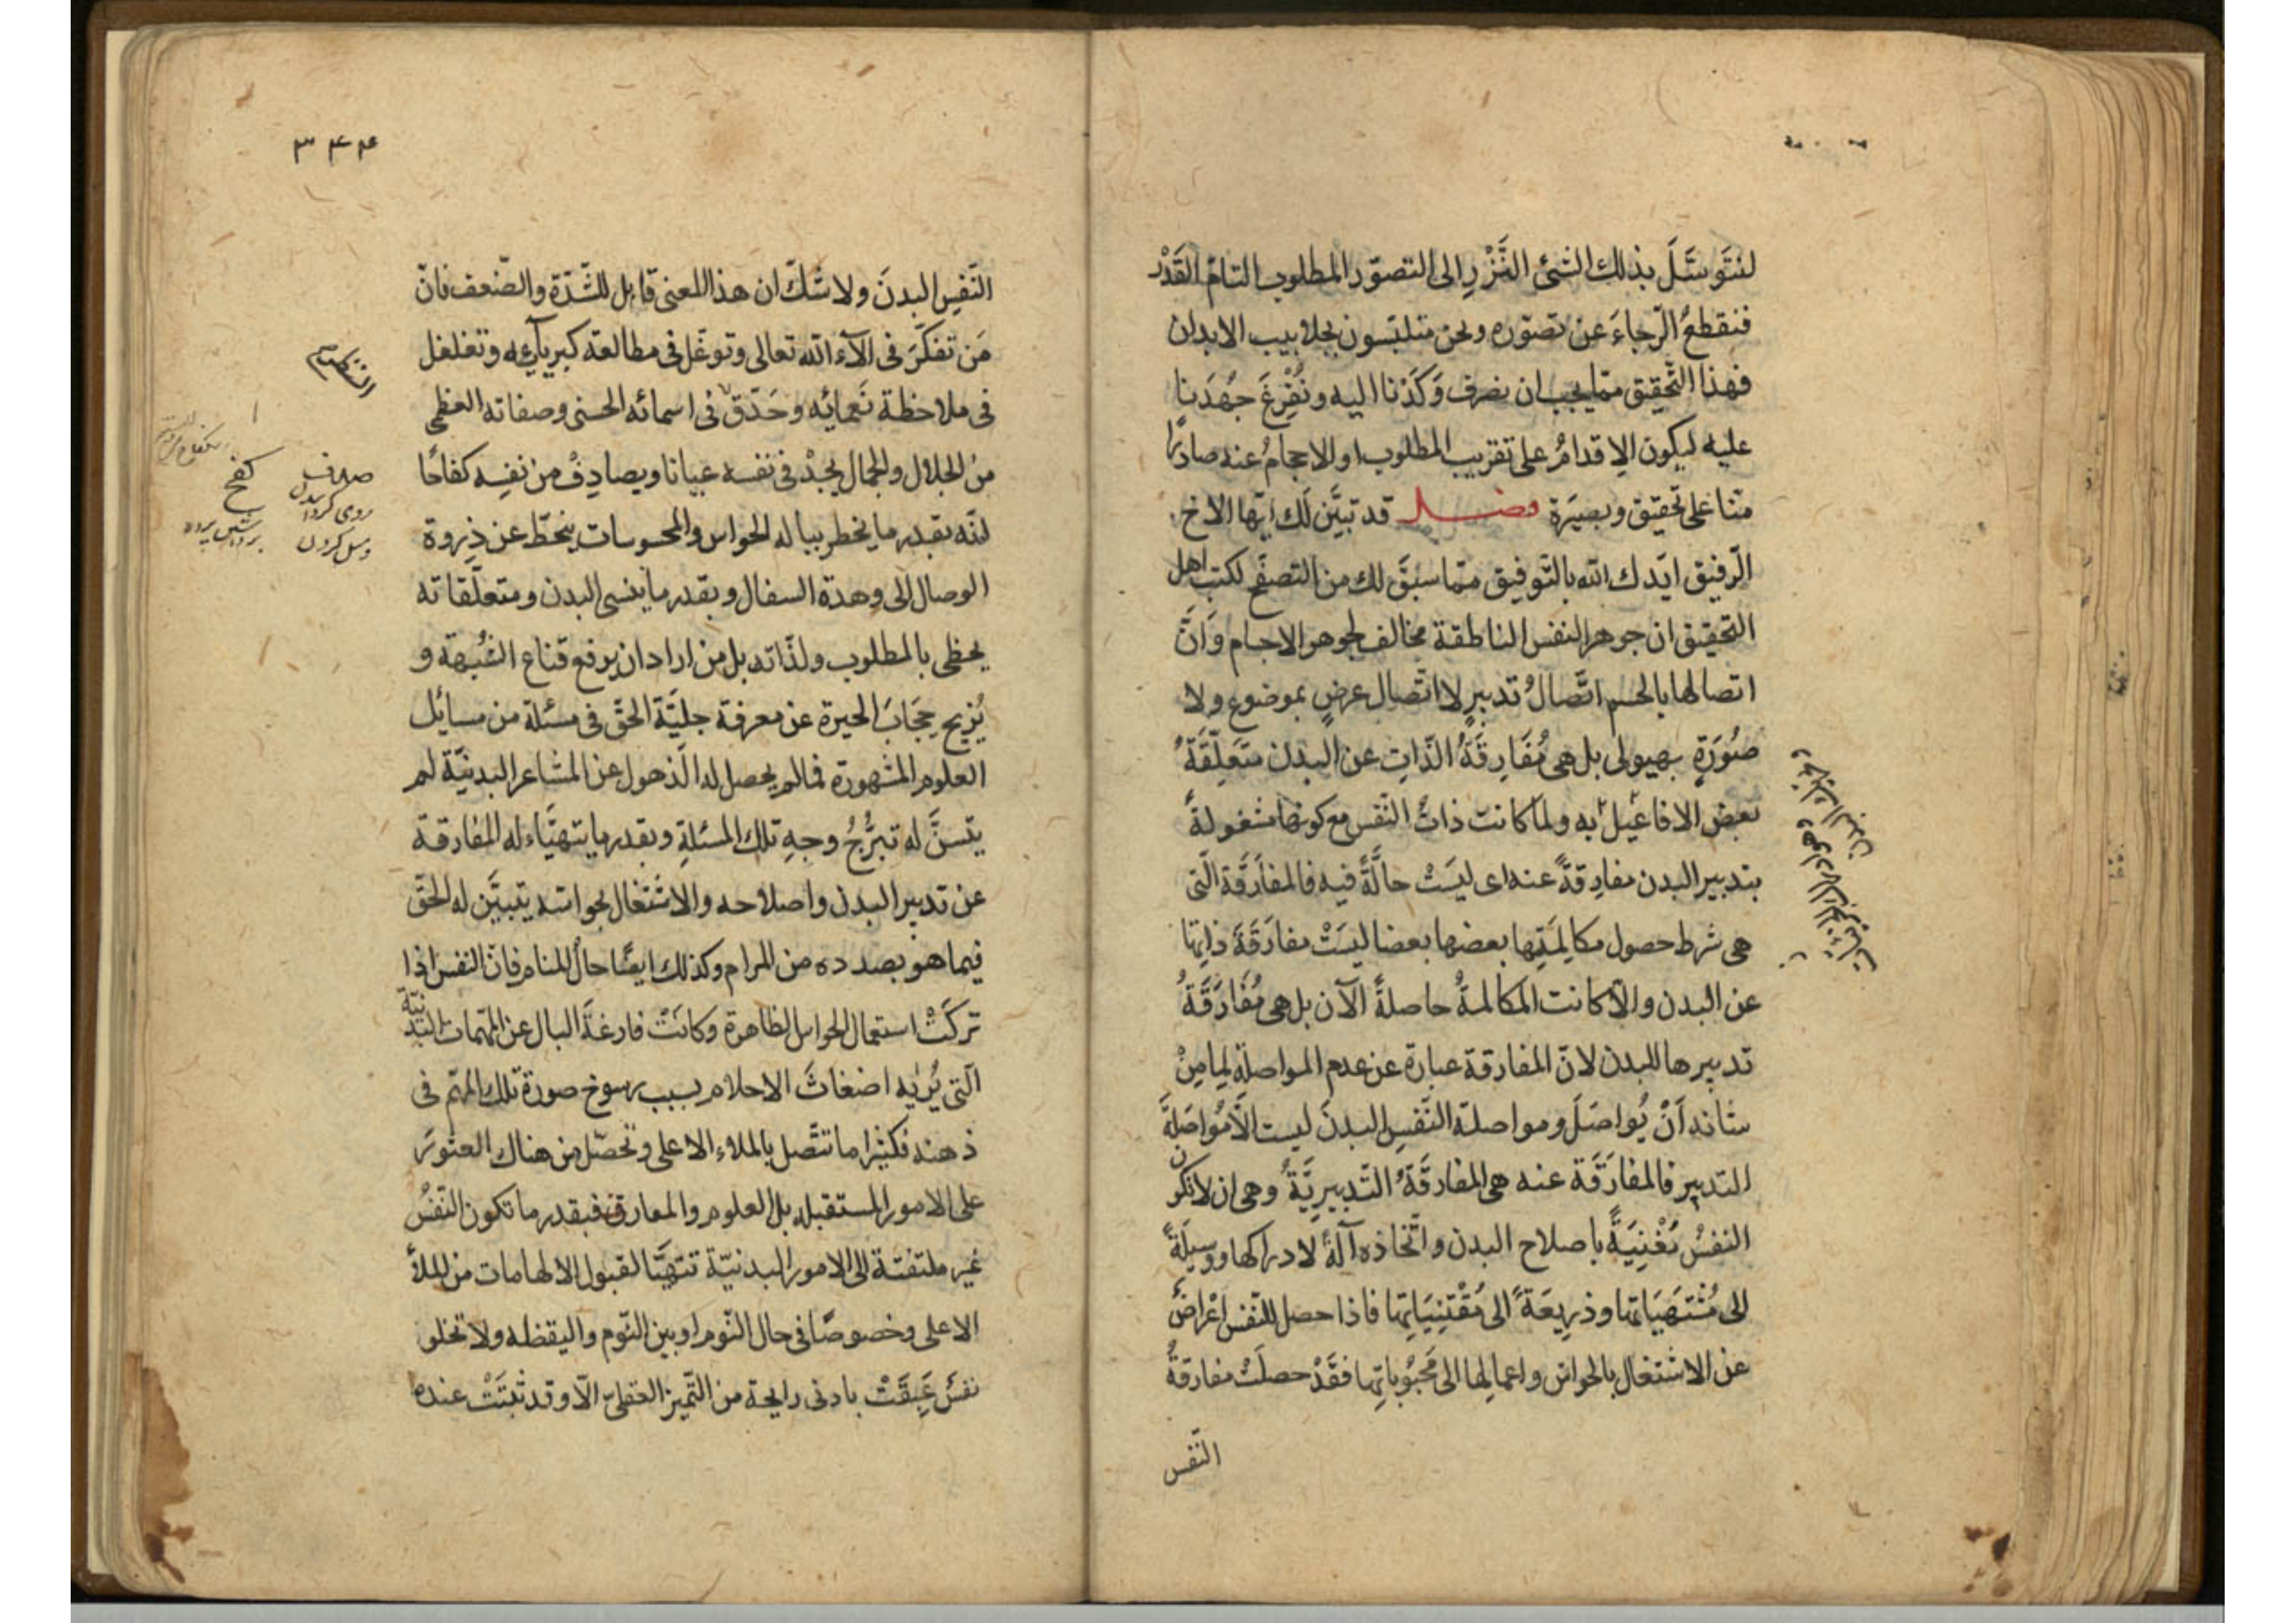 لنتوسّل بذلك الشئ النَّزْرِ الى التصوّر المطلوب التامّ القَدْر
فنقطعُ الرّجاءَ عن تصوّره ونحن متلبّسون بجلابيب الابدان
فهذا التّحقيق ممّا يجب ان نصرف وَكَدَنا اليه ونُفْرِغَ جُهَدَنا
عليه ليكون الاِقدامُ على تقريب المطلوب او الاحجامُ عنه صادرًا
منّا على تحقيق وبصيَرة فصل قد تبيَّن لَك ايّها الاخ
الرّفيق ايّدك الله بالتّوفيق ممّا سبَقَ لك من التصفّح لكتب اهل
التحقيق ان جوهر النفس الناطقة مخالف لجوهر الاجسام وَاَنَّ
اتصالها بالجسم اتّصالُ تدبيرٍ لا اتّصال عرضٍ بموضوع ولا
صُوَرَةٍ بهيولى بل هى مُفَارِقَةُ الذّاتِ عن البدن متَعلِّقَةُ
بعض الافاعيل به ولمّا كانت ذاتُ النّفس مع كونها مشغولةً
بتدبير البدن مفارِقةً عنه اى ليسَتْ حالَّةً فيه فالمفارَقة الّتى
هى شرط حصول مكالمَتِها بعضها بعضا ليسَتْ مفارَقَةَ ذاتِها
عن البدن والّا كانت المكالمةُ حاصلةً الآن بل هى مُفَارَقَةُ
تدبيرها للبدن لانّ المفارقة عبارة عن عدم المواصلة لِما مِنْ
شانه اَنْ يُواصَلَ ومواصلة النَّفسِ البدنَ ليست الّا مُواصَلَةَ
التدبير فالمفارَقَة عنه هى المفارقَةُ التّدبيرِيَّةُ وهى ان لا تكون
النفسُ مُعْنِيَةً باصلاح البدن واتّخاذه آلةً لادراكها ووسيلَةً
الى مُشْتهَيَاتها وذرِيعَةً الى مُقْتَنِيَاتِها فاذا حصل للنّفس اعْراضٌ
عن الاشتغال بالحواسّ واعمالِها الى مَحْبُوباتِها فقَدْ حصلَتْ مفارقةُ
النّفس
٣٤٤
النَّفسِ البدنَ ولا شكّ ان هذا المعنى قابل للشّدّة والضّعف فانّ
مَن تفكَّرَ فى الآء الله تعالى وتوغّل فى مطالعة كبريآئه وتغلغل
فى ملاحظة نَعمائه وحَدّقَ فى اسمائه الحسنى وصفاته العظمى
من الجلال والجمال يجدْ فى نفسه عيانا ويصادِفْ من نفسِه كفاحًا
انّه بقدر ما يخطر بباله الحواس والمحسوسات ينحطّ عن ذِروة
الوصال الى وهدة السفال وبقدر ما ينسى البدن ومتعلّقاته
يحظى بالمطلوب ولذّاته بل من اراد ان يرفع قناع الشُبهة و
يُزيح حِجَابَ الحيرة عن معرفة جليَّة الحقّ فى مسئلة من مسائل
العلوم المشهورة فما لم يحصل له الذّهول عن المشاعر البدنيّة لم
يتسنَّ له تبرُّجُ وجهِ تلك المسئلةِ وبقدر ما يتهيّاء له المفارقة
عن تدبير البدن واصلاحه والاشتغال بحواسّه يتبيَّن له الحقّ
فيما هو بصدده من المرام وكذلك ايضًا حالُ المنام فانّ النفس اذا
تركَتْ استعمال الحواس الظاهرة وكانَتْ فارغةَ البال عن المهمّات البَدَنيّة
الّتى يُرْيه اضغاثَ الاحلام بسبب رسوخ صورة تلك المهمّ فى
ذهنه فكثيرا ما تتّصل بالملاء الاعلى وتحصّل من هناك العثورَ
على الامور المستقبله بل العلوم والمعارف فبقدر ما تكون النّفسُ
غير ملتفتة الى الامور البدنيّة تتهيَّا لقبول الالهامات من الملأ
الاعلى وخصوصًا فى حال النّوم او بين النّوم واليقظه ولا تخلو
نفسٌ عَبِقَتْ بادنى رايحة من التّميز العقلىّ الّا وقد ثبتَتْ عنده
كفح